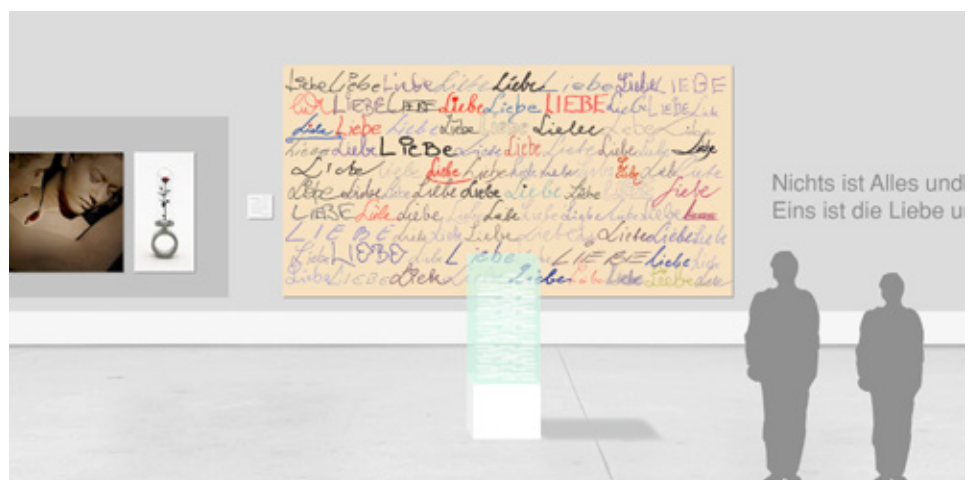 Liebe Liebe Liebe Liebe Liebe Liebe Liebe LIEBE
LIEBE LIEBE Liebe Liebe LIEBE Liebe LIEBE Liebe
Liebe Liebe Liebe Liebe Liebe Liebe Liebe
Liebe Liebe LIEBE Liebe Liebe Liebe Liebe Liebe Liebe
Liebe Liebe Liebe Liebe Liebe Liebe Liebe Liebe Liebe
Liebe Liebe Liebe Liebe Liebe Liebe Liebe Liebe
LIEBE Liebe Liebe Liebe Liebe Liebe Liebe Liebe Liebe
LIEBE Liebe Liebe Liebe Liebe Liebe Liebe Liebe
Liebe LIEBE Liebe Liebe LIEBE Liebe Liebe
Liebe LIEBE Liebe Liebe Liebe Liebe Liebe Liebe
Nichts ist Alles und
Eins ist die Liebe